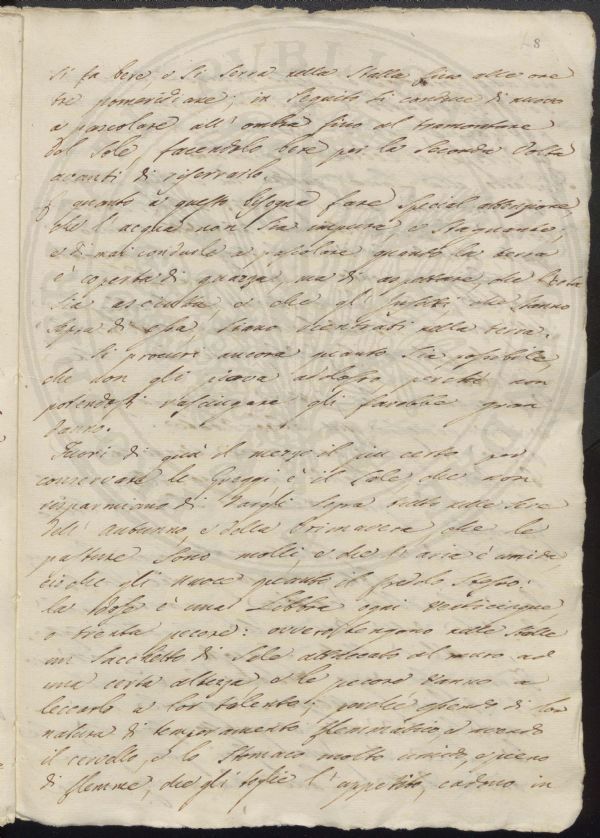 8
si fa bere, e si serra nella Stalla fino alle ore
tre pomeridiane; in seguito si conduce di nuovo
a pascolare all'ombra fino al tramontare
del Sole, facendolo bere per la Seconda Volta
avanti di riserrarlo.
quanto a questo bisogna fare special attenzione,
che l'acqua non sia impura, e Stagnante,
e di mai condurlo a pascolare quando la terra
è coperta di guazza, ma di aspettare, che
sia asciutta, e che gl'insetti che stanno
sopra di essa, siano rientrati nella terra.
Si procuri ancora quanto sia possibile,
che non gli piova addosso perchè non
potendosi rasciugare gli farebbe gran
danno.
Fuori di quà il mezzo il più certo per
conservare le Greggi è il Sale che non
risparmiano di dargli sopra tutto nelle sere
dell'Autunno, e della Primavera che le
pasture sono molli, e che l'aria è umida
ciò che gli nuoce quanto il freddo stesso:
la dose è una Libbra ogni venticinque
o trenta pecore: ovvero tengono nelle Stalle
un Sacchetto di Sale attaccato al muro ad
una certa altezza e le pecore vanno a
leccarlo a lor talento; poichè essendo di lor
natura di temperamento flemmatico, e avendo
il cervello, e lo Stomaco molto umido, e pieno
di flemme, che gli toglie l'appetito, cadono in